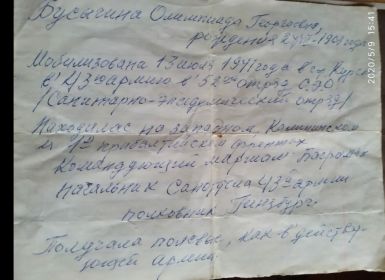 Бусыгина Олимпиада Георгевна,
рождения 27/VI-1901 года
Мобилизована 13 июля 1941 года в г. Курск
в 43ю армию в 52ой отряд С.Э.О.
/Санитарно-эпидемический отряд/
Находилас на западном, Калининском
и 1ом прибалтийском фронтах
Командующий маршал Баграмян
Начальник Санотдела 43ей армии
полковник Гинзбург.
Получала полевые, как в действу-
ющей армии.
2020/5/9 15:41